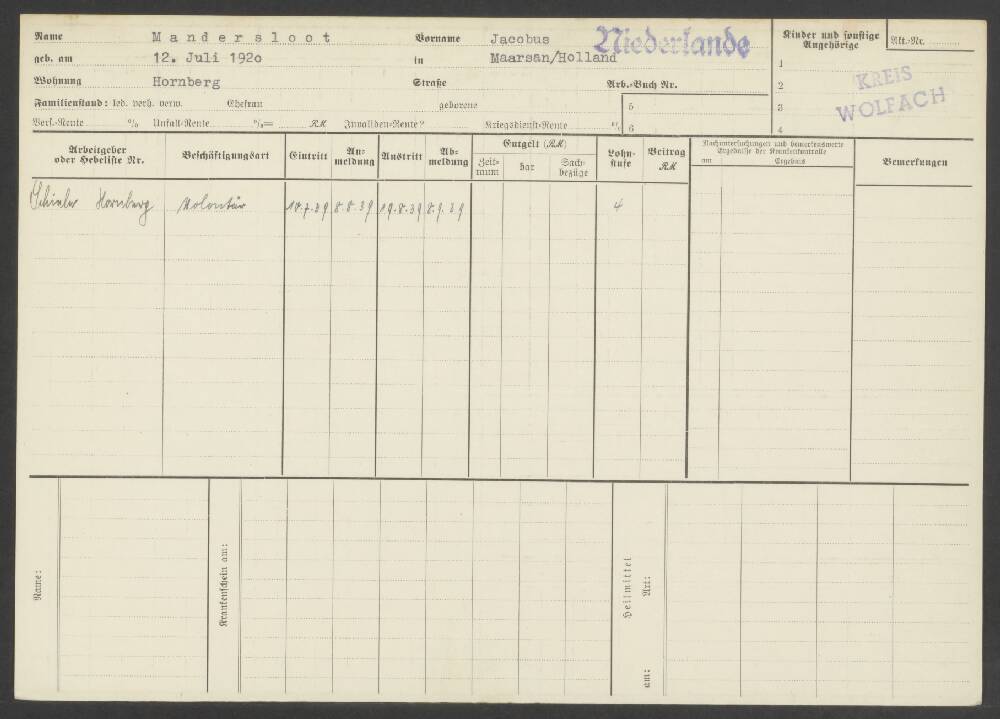 Name Mandersloot Vorname Jacobus Niederlande
geb. am 12. Juli 1920 in Maarsan/Holland
Wohnung Hornberg Straße Arb.-Buch Nr.
Familienstand: led. verh. verw. Ehefrau geborene
Vers.-Rente % Unfall-Rente %= RM Invaliden-Rente? Kriegsdienst-Rente %
Kinder und sonstige Angehörige Akt.-Nr.
1
2
3
4
5
6
KREIS
WOLFACH
Arbeitgeber oder Hebeliste Nr.
Beschäftigungsart
Eintritt
An-
meldung
Austritt
Ab-
meldung
Entgelt (RM)
Zeit-
raum
bar
Sach-
bezüge
Lohn-
stufe
Beitrag
RM
Nachuntersuchungen und bemerkenswerte
Ergebnisse der Krankenkontrolle
am Ergebnis
Bemerkungen
Schiele Hornberg Volontär 18.7.39 8.8.39 19.8.39 8.9.39 4
Name:
Krankenschein am:
Heilmittel
Art:
am: